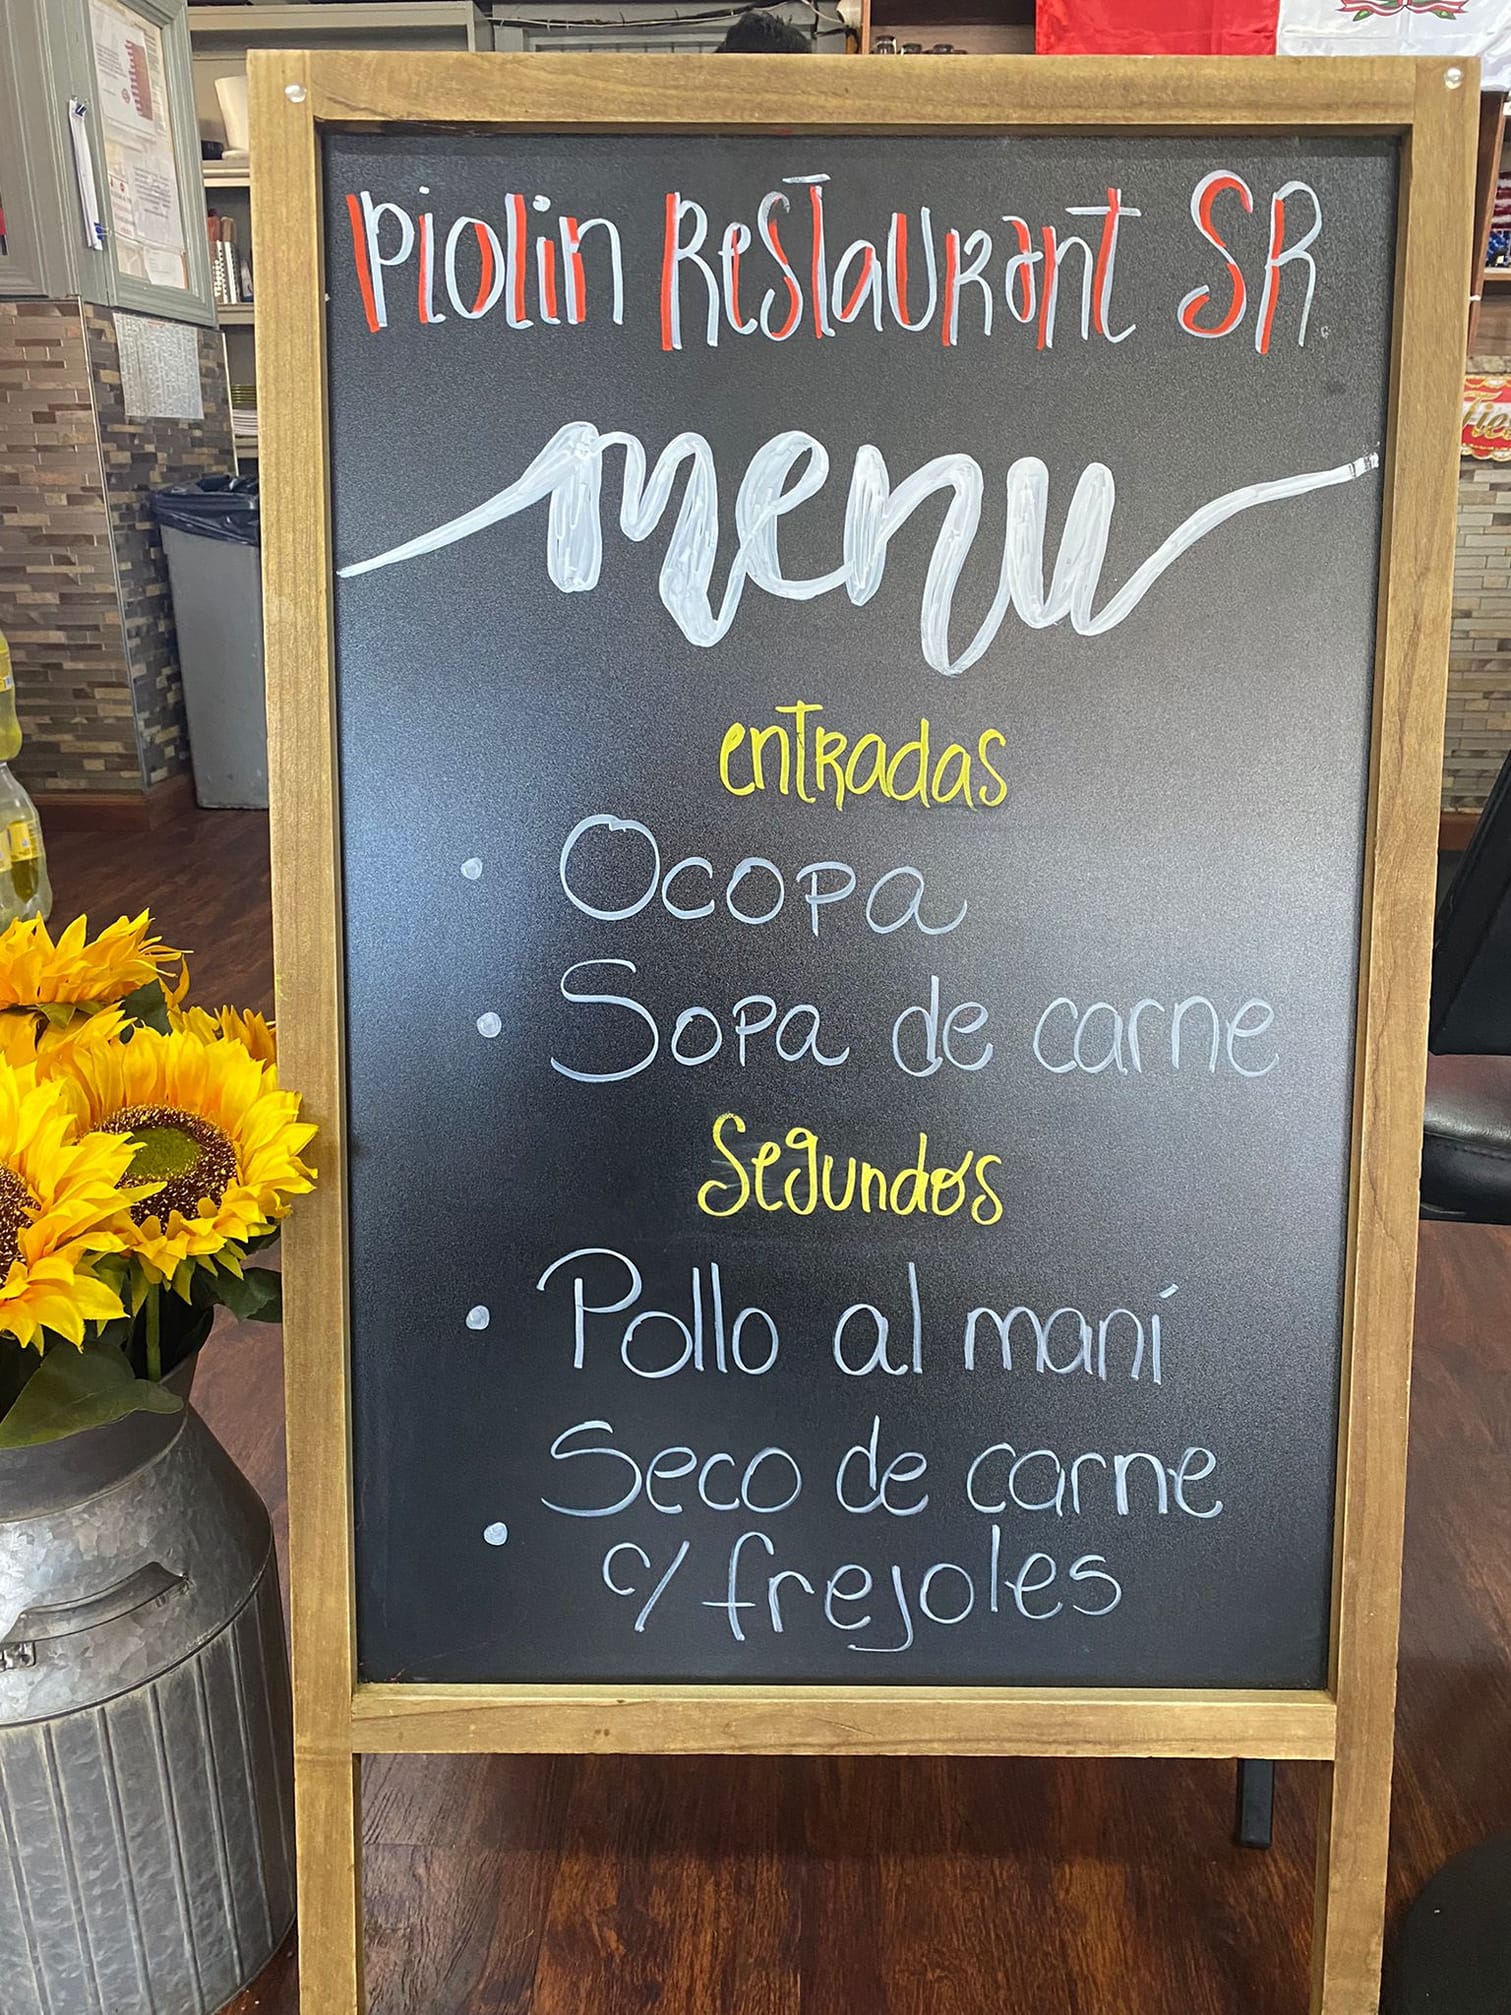 Piolin Restaurant SR.
menu
entradas
• Ocopa
• Sopa de carne
Segundos
• Pollo al maní
• Seco de carne
c/ frejoles